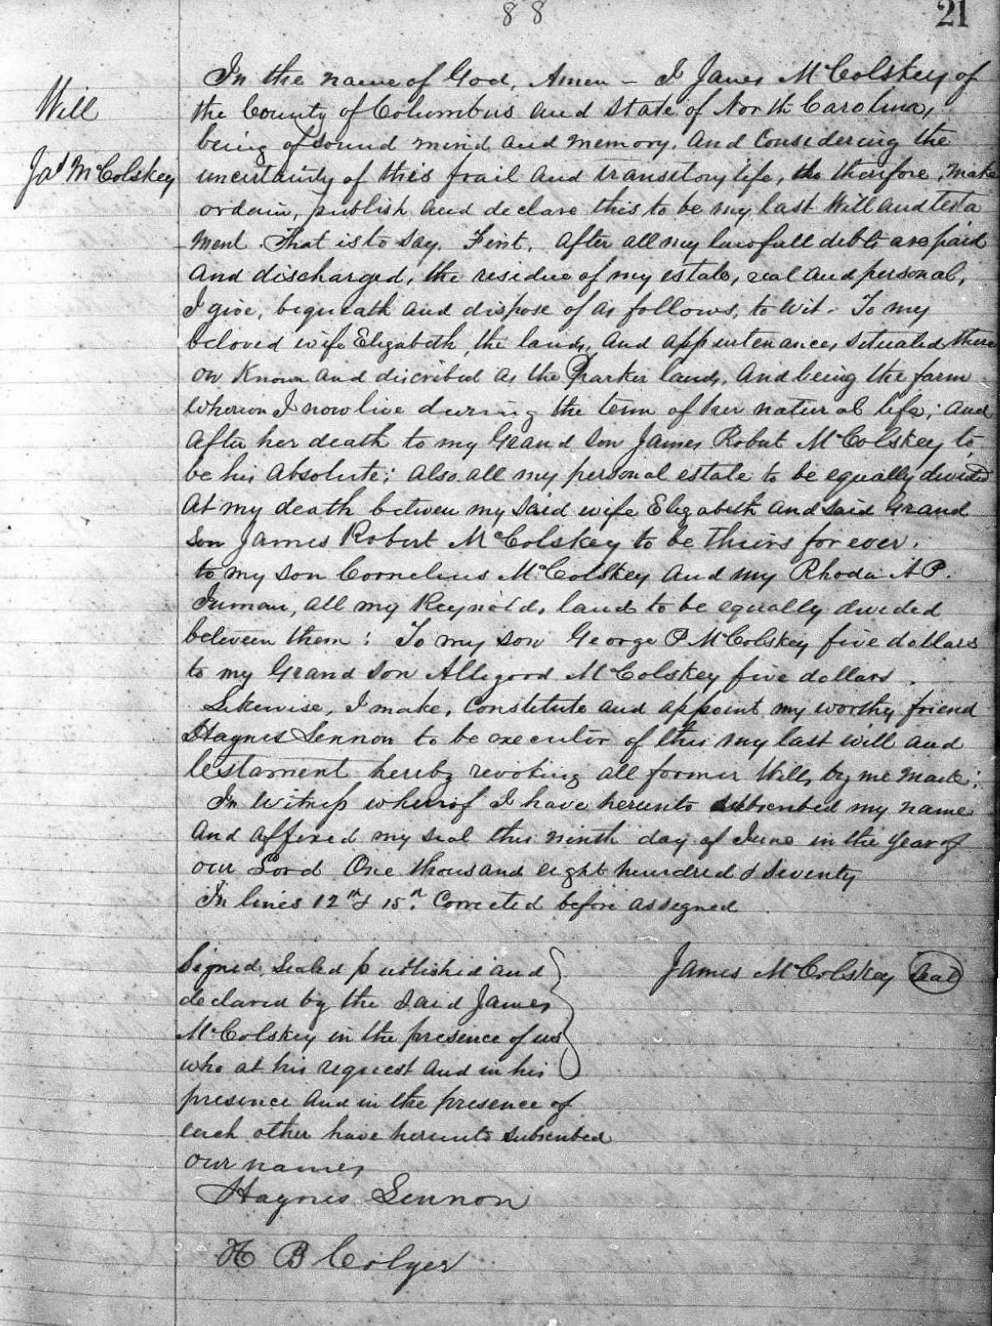 88
21
Will
Jas McColskey
In the name of God, Amen – I James McColskey of
the County of Columbus and State of North Carolina,
being of sound mind and memory, and Considering the
uncertainty of this frail and transitory life, do therefore, make
ordain, publish and declare this to be my last Will and testa
ment. That is to say. First, After all my lawfull debts are paid
and discharged, the residue of my estate, real and personal,
I give, bequeath and dispose of as follows, to wit. To my
beloved wife Elizabeth, the lands, and appurtenances situated there
on Known and discribed as the Parker lands, and being the farm
Whereon I now live during the term of her natural life; and
after her death to my Grand son James Robert McColskey to
be his absolute; also all my personal estate to be equally divided
at my death between my said wife Elizabeth and said Grand
son James Robert McColskey to be theirs forever.
to my son Cornelius McColskey and my Rhoda A P.
Inman, all my Reynolds land to be equally divided
between them: To my son George P McColskey five dollars
to my Grand son Alligood McColskey five dollars.
Likewise, I make, Constitute and appoint my worthy friend
Haynes Lennon to be executor of this my last will and
testament hereby revoking all former Wills by me made:
In Witness whereof I have herunto subscribed my name
and affixed my seal this ninth day of June in the Year of
our Lord One thousand eight hundred & seventy
In lines 12th & 15th Corrected before assigned
Signed, Sealed published and
declared by the said James
McColskey in the presence of us
who at his request and in his
presence and in the presence of
each other have herunto subscribed
our names
James McColskey Seal
Haynes Lennon
H B Colyer